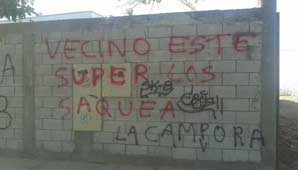 VECINO ESTE
SUPER LOS
SAQUEA
LA CAMPORA
A
B